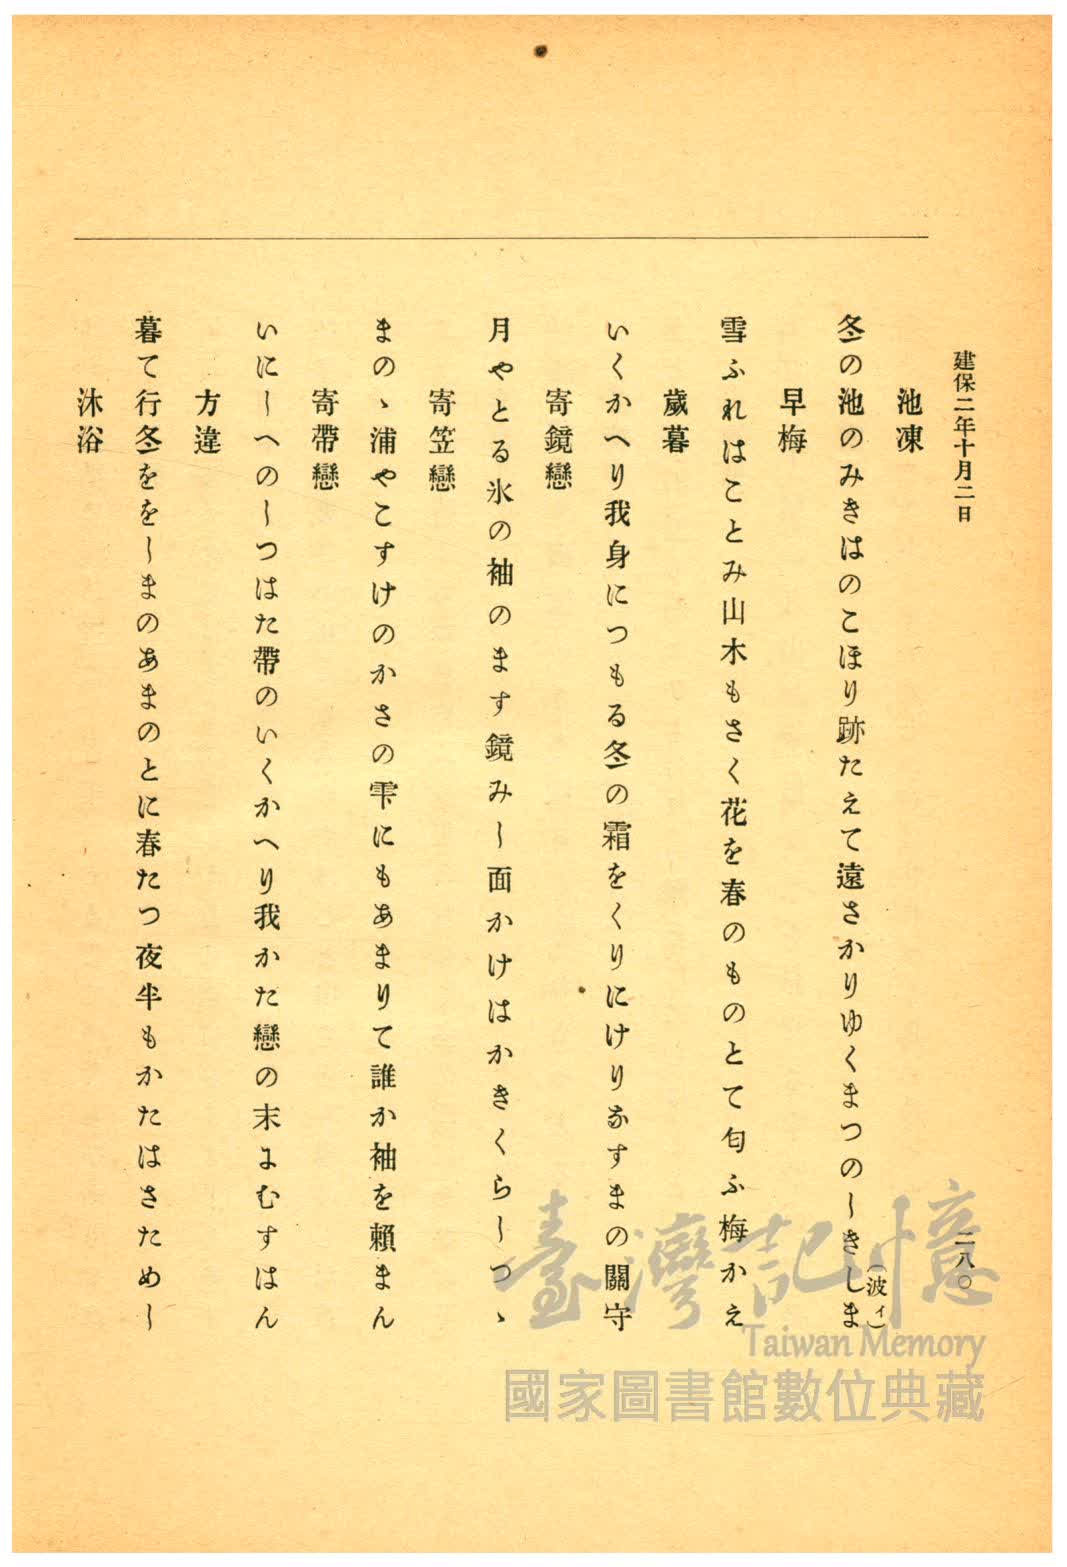 建保二年十月二日
二八〇
池凍
冬の池のみきはのこほり跡たえて遠さかりゆくまつのしきしま
(波イ)
早梅
雪ふれはことみ山木もさく花を春のものとて匂ふ梅かえ
歲暮
いくかへり我身につもる冬の霜をくりにけりなすまの關守
寄鏡戀
月やとる氷の袖のます鏡みし面かけはかきくらしつゝ
寄笠戀
まのゝ浦やこすけのかさの雫にもあまりて誰か袖を賴まん
寄帶戀
いにしへのしつはた帶のいくかへり我かた戀の末にむすはん
方違
暮て行冬ををしまのあまのとに春たつ夜半もかたはさためし
沐浴
臺灣記憶
Taiwan Memory
國家圖書館數位典藏